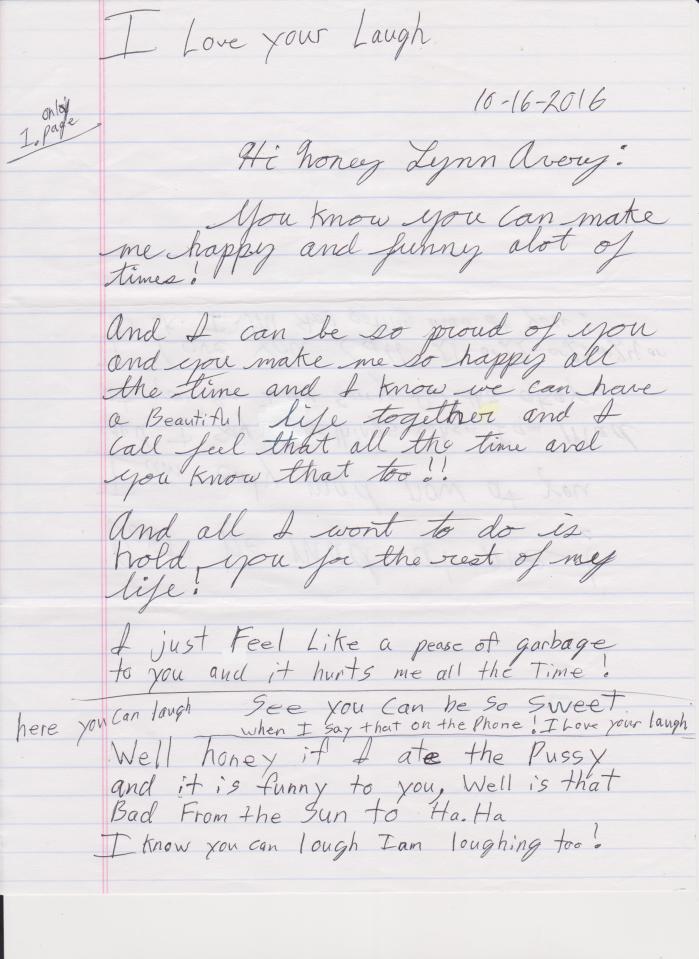 I Love your Laugh
10-16-2016
only
1. page
Hi honey Lynn Avery:
You know you can make
me happy and funny alot of
times!
And I can be so proud of you
and you make me so happy all
the time and I know we can have
a Beautiful life together and I
call feel that all the time and
you know that too!!
And all I wont to do is
hold you for the rest of my
life!
I just Feel Like a pease of garbage
to you and it hurts me all the Time!
here you can laugh
See you Can be So Sweet
when I say that on the Phone! I Love your laugh
Well honey if I ate the Pussy
and it is funny to you, Well is that
Bad From the Sun to Ha.Ha
I know you can lough I am loughing too!